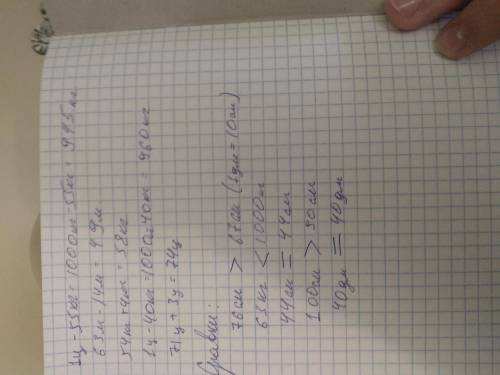 1ц - 55кг = 1000кг - 55кг = 995кг
63м - 14м = 49м
54кг + 4кг = 58кг
1ц - 40кг = 1000кг 40кг = 960кг
71ц + 3ц = 74ц
Сравни:
76см > 67см (1дм = 10см)
63кг < 1000кг
44см = 44см
100см > 90см
40дм = 40дм